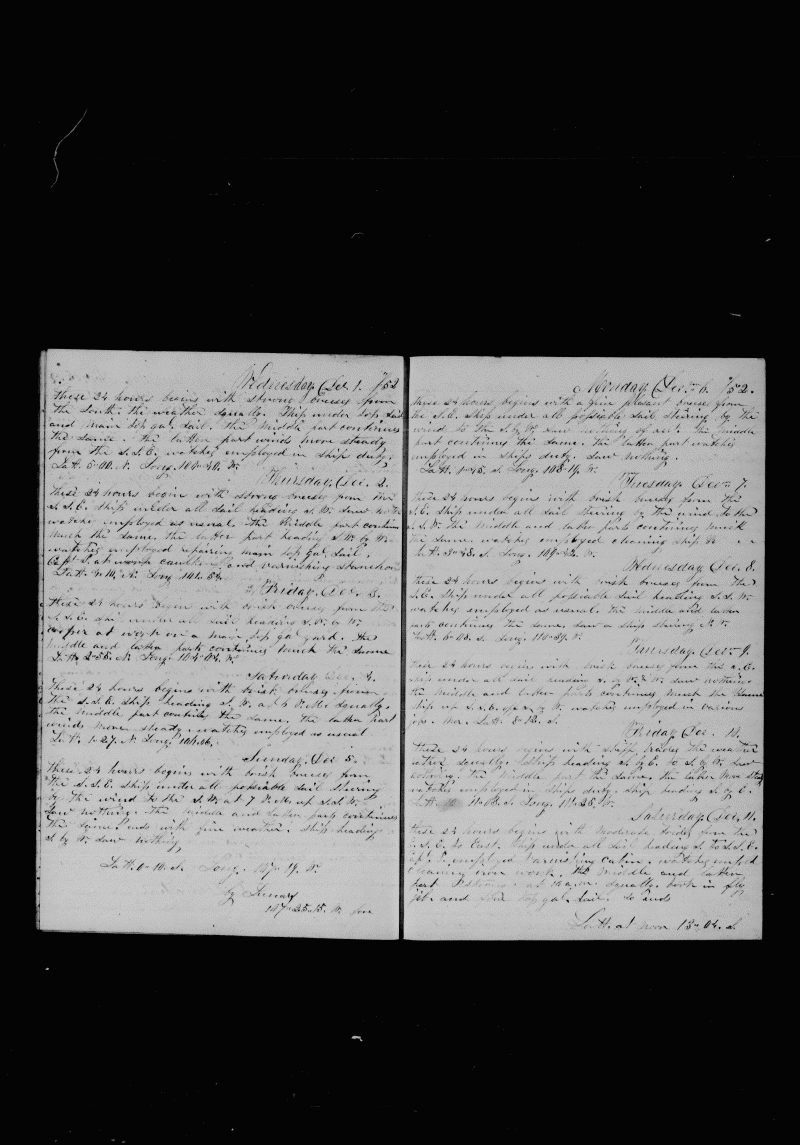 Wednesday Dec. 1. /52
these 24 hours begins with strong breeses from
the South. the weather squally. Ship under top sail
and main top gal. sail. the middle part continues
the same. the latter part winds more steady
from the S.S.E. watches employed in ship duty.
Latt. 5-00. N. Long. 104-40. W.
Thursday Dec. 2.
these 24 hours begin with strong breeses from the
S.S.E. Ship under all sail heading S.W. Saw nothing
watches employed as usual. the Middle part continues
much the same. the latter part heading S.W. by W.
watches employed repairing main top gal sail.
at work caulking and varnishing
Latt. N. Long.
Friday Dec. 3.
these 24 hours begin with brisk breeses from the
S.S.E. sail under all sail heading S.W. by W.
cooper at work on a main top gal yard. the
middle and latter parts continues much the same
Latt. 2-56. N. Long.
Saturday Dec. 4.
These 24 hours begins with brisk breeses from
the S.S.E. Ship heading S.W. at 6 P.M. squally.
the middle part continues the same. the latter part
winds more steady. watches employed as usual
Latt. 1-27. N. Long. 106-06.
Sunday. Dec 5.
these 24 hours begins with brisk breeses from
the S.S.E. Ship under all possiable sail stearing
by the wind to the S.W. at 7 P.M.
Saw nothing. the middle and latter parts continues
the same. ends with fine weather. Ship heading
S. by W. Saw nothing
Latt. 0-10. S. Long. 107-19. W.
by Lunars
107-25-15. W.
Monday Dec. 6. /52.
these 24 hours begins with a fine pleasant breeses from
the S.E. Ship under all possiable sail stearing by the
wind to the S. by W. saw nothing the middle
part continues the same. the latter part watches
employed in ships duty. Saw nothing.
Latt. 1-45. S. Long. 108-19. W.
Tuesday. Dec. 7.
these 24 hours begins with brisk breeses from the
S.E. Ship under all sail stearing by the wind to the
S.W. the middle and latter parts continues much
the same. watches employed cleaning ship &c
Latt. 3-48. S. Long. 109-42. W.
Wednesday Dec. 8.
these 24 hours begins with brisk breeses from the
S.E. Ship under all possiable sail heading S.S.W.
watches employed as usual. the middle and latter
parts continues the same. saw a ship stearing N.W.
Latt. 6-03. S. Long. 110-39. W.
Thursday Dec. 9.
these 24 hours begins with brisk breeses from the S.E.
Ship under all sail heading S. by W. saw nothing
the middle and latter parts continues much the same
ship up watches employed in various
jobs. Latt. 8-18. S.
Friday Dec. 10.
these 24 hours begins with the weather
squally. Ship heading S. by E. to S. by W. Saw
nothing. the middle part the same. the latter more steady
watches employed in ships duty. ship heading S. by E.
Latt. S. Long. 111-25. W.
Saturday Dec. 11.
these 24 hours begins with moderate from the
S.S.E. to East. Ship under all sail heading S. to S.S.E.
employed varnishing cabin. watches employed
cleaning iron work. the middle and latter
part squally. took in flying
jib. and fore top gal. sail. so ends
Latt. at noon 13-04. S.